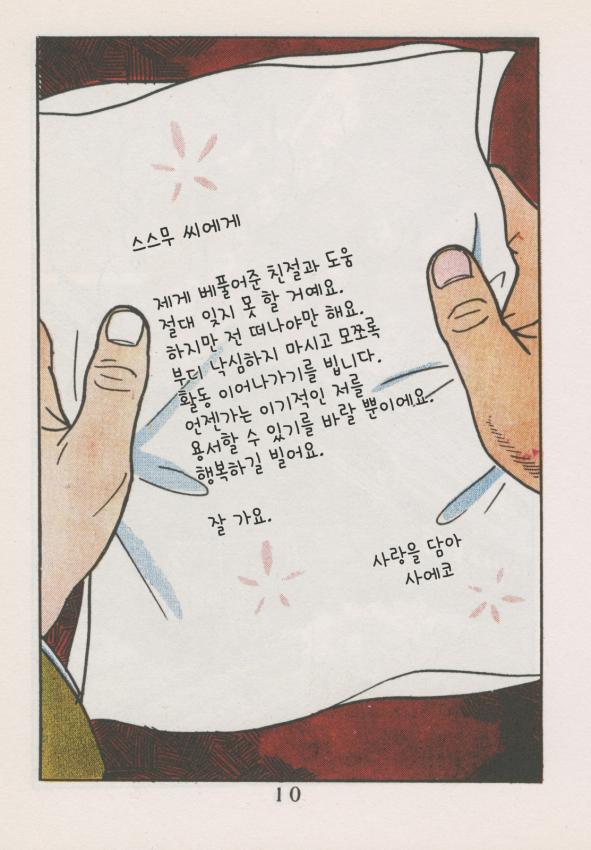 스스무 씨에게
제게 베풀어준 친절과 도움
절대 잊지 못 할 거예요.
하지만 전 떠나야만 해요.
부디 낙심하지 마시고 모쪼록
활동 이어나가기를 빕니다.
언젠가는 이기적인 저를
용서할 수 있기를 바랄 뿐이에요.
행복하길 빌어요.
잘 가요.
사랑을 담아
사에코
10